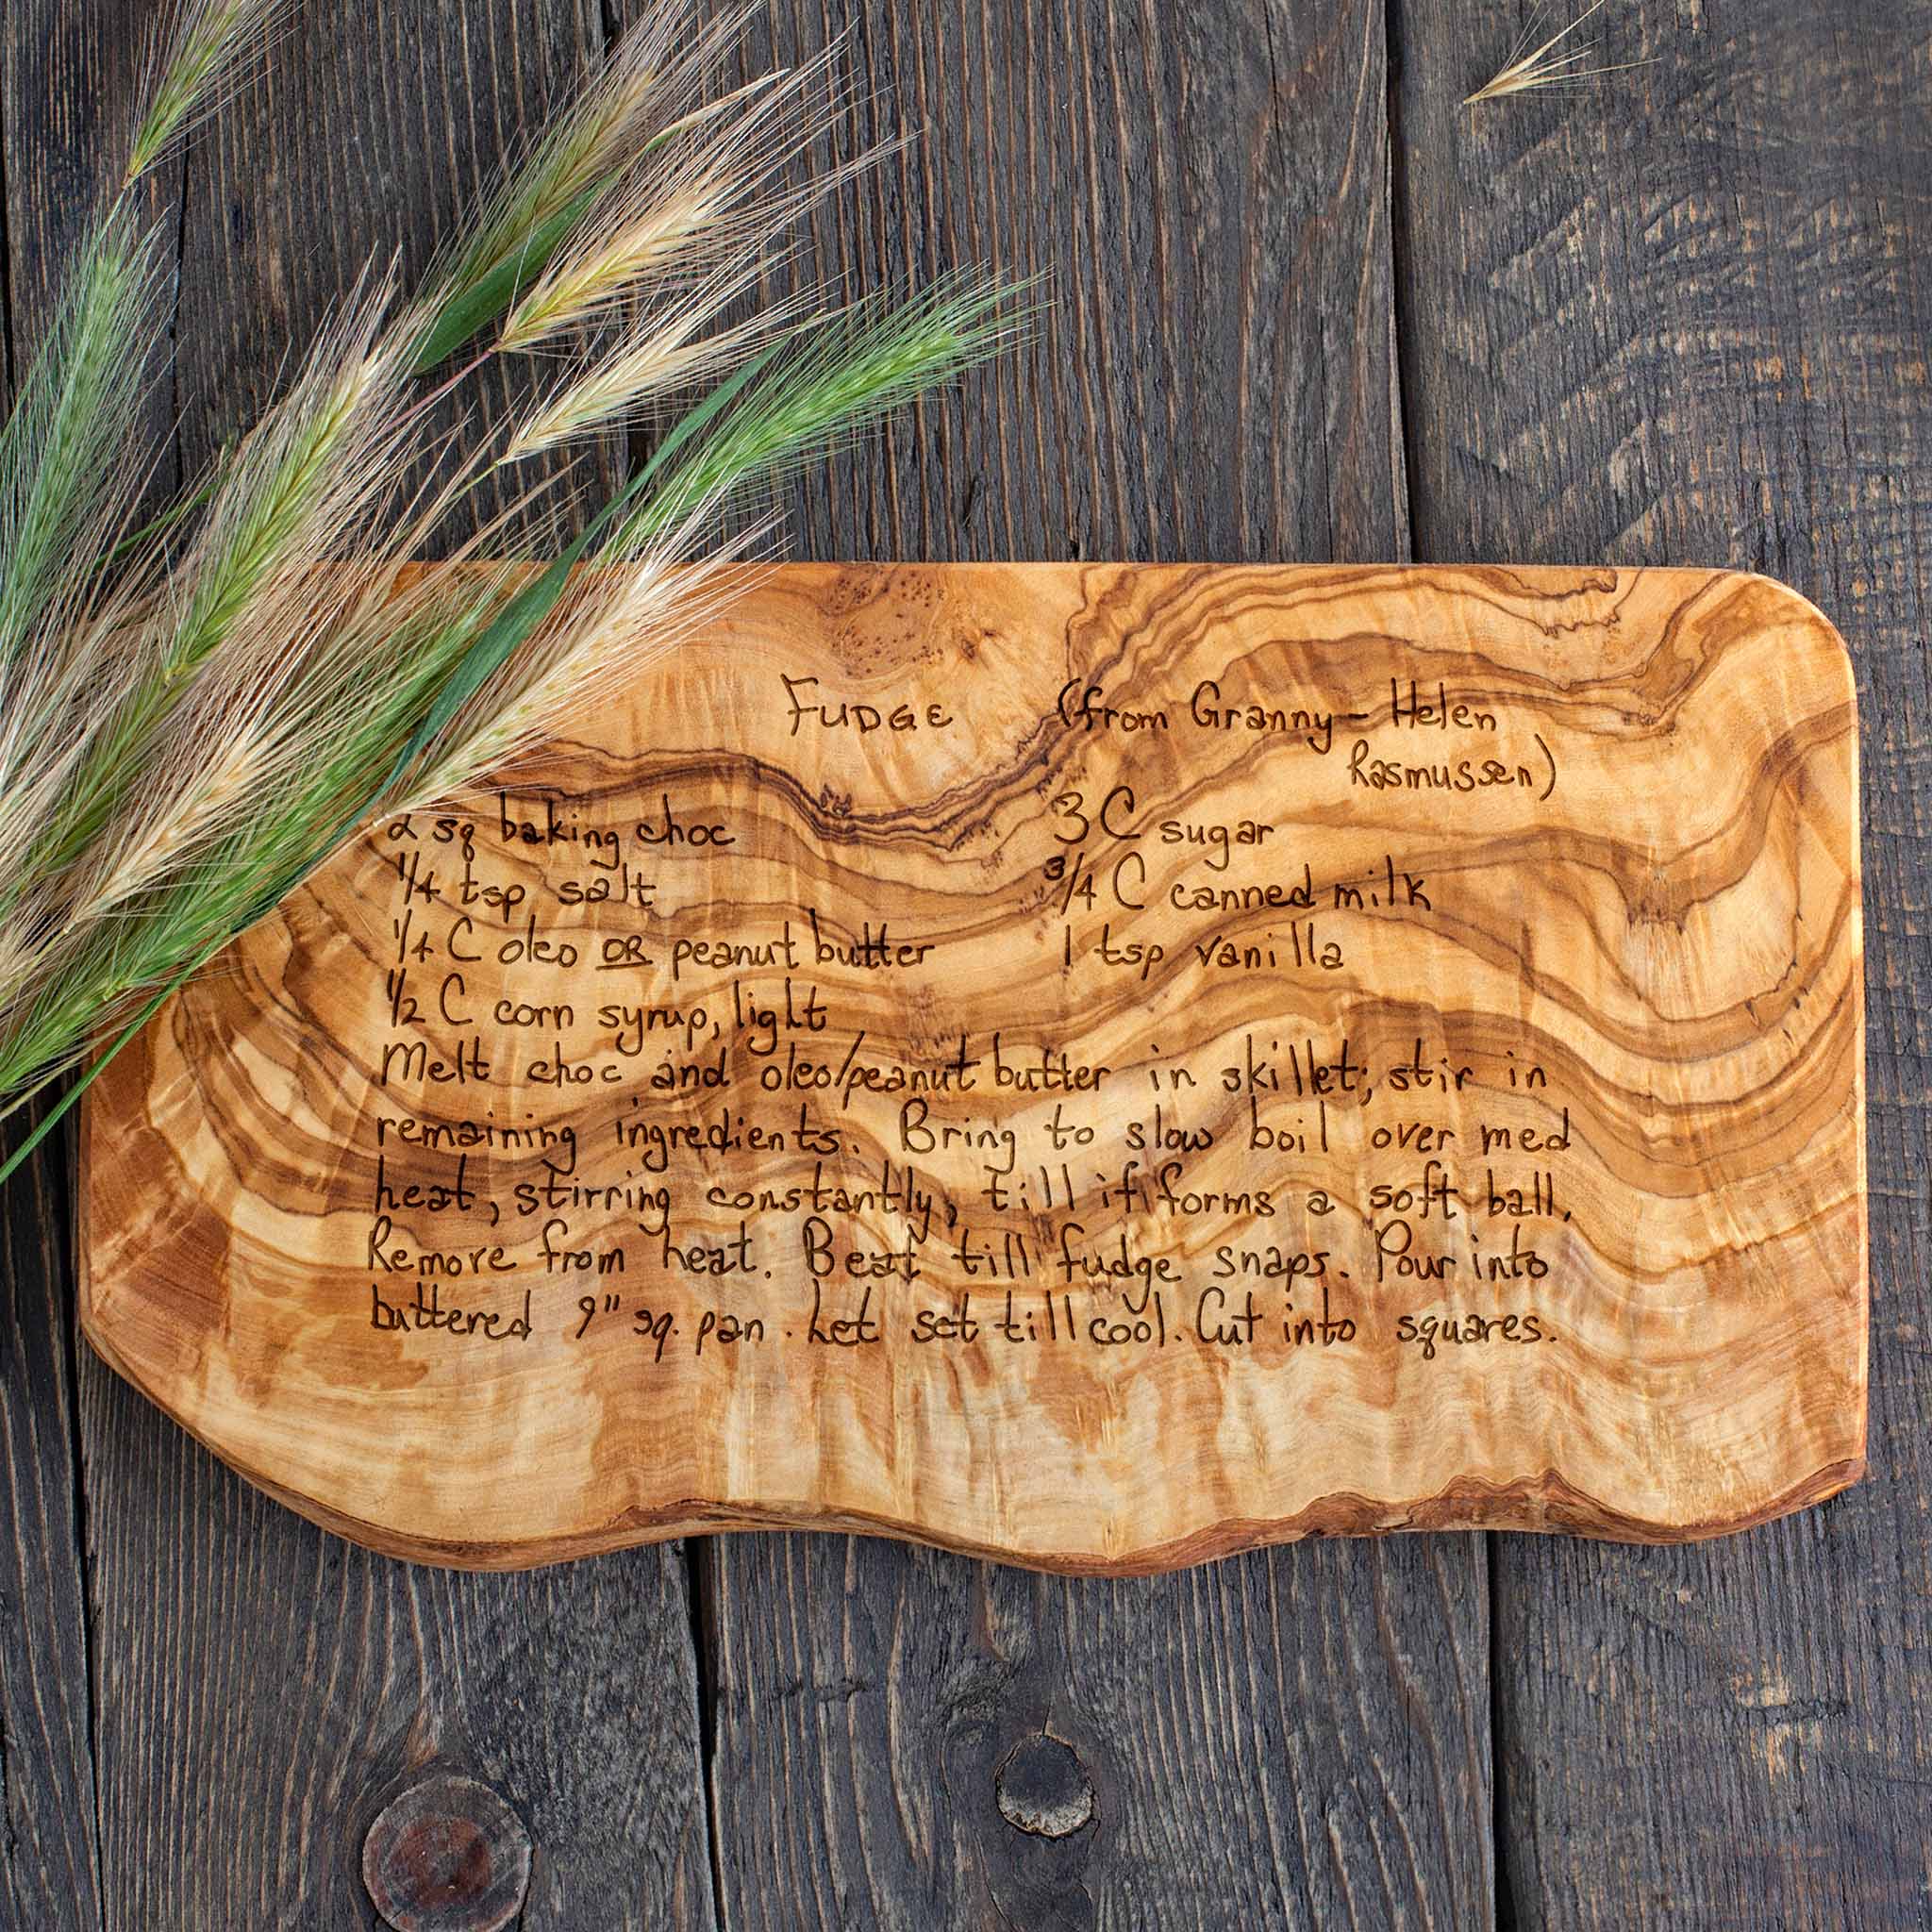 FUDGE (from Granny - Helen
Rasmussen)
2 sq baking choc 3 C sugar
1/4 tsp salt 3/4 C canned milk
1/4 C oleo OR peanut butter 1 tsp vanilla
1/2 C corn syrup, light
Melt choc and oleo/peanut butter in skillet; stir in
remaining ingredients. Bring to slow boil over med
heat, stirring constantly, till it forms a soft ball.
Remove from heat. Beat till fudge snaps. Pour into
buttered 9" sq. pan. Let set till cool. Cut into squares.